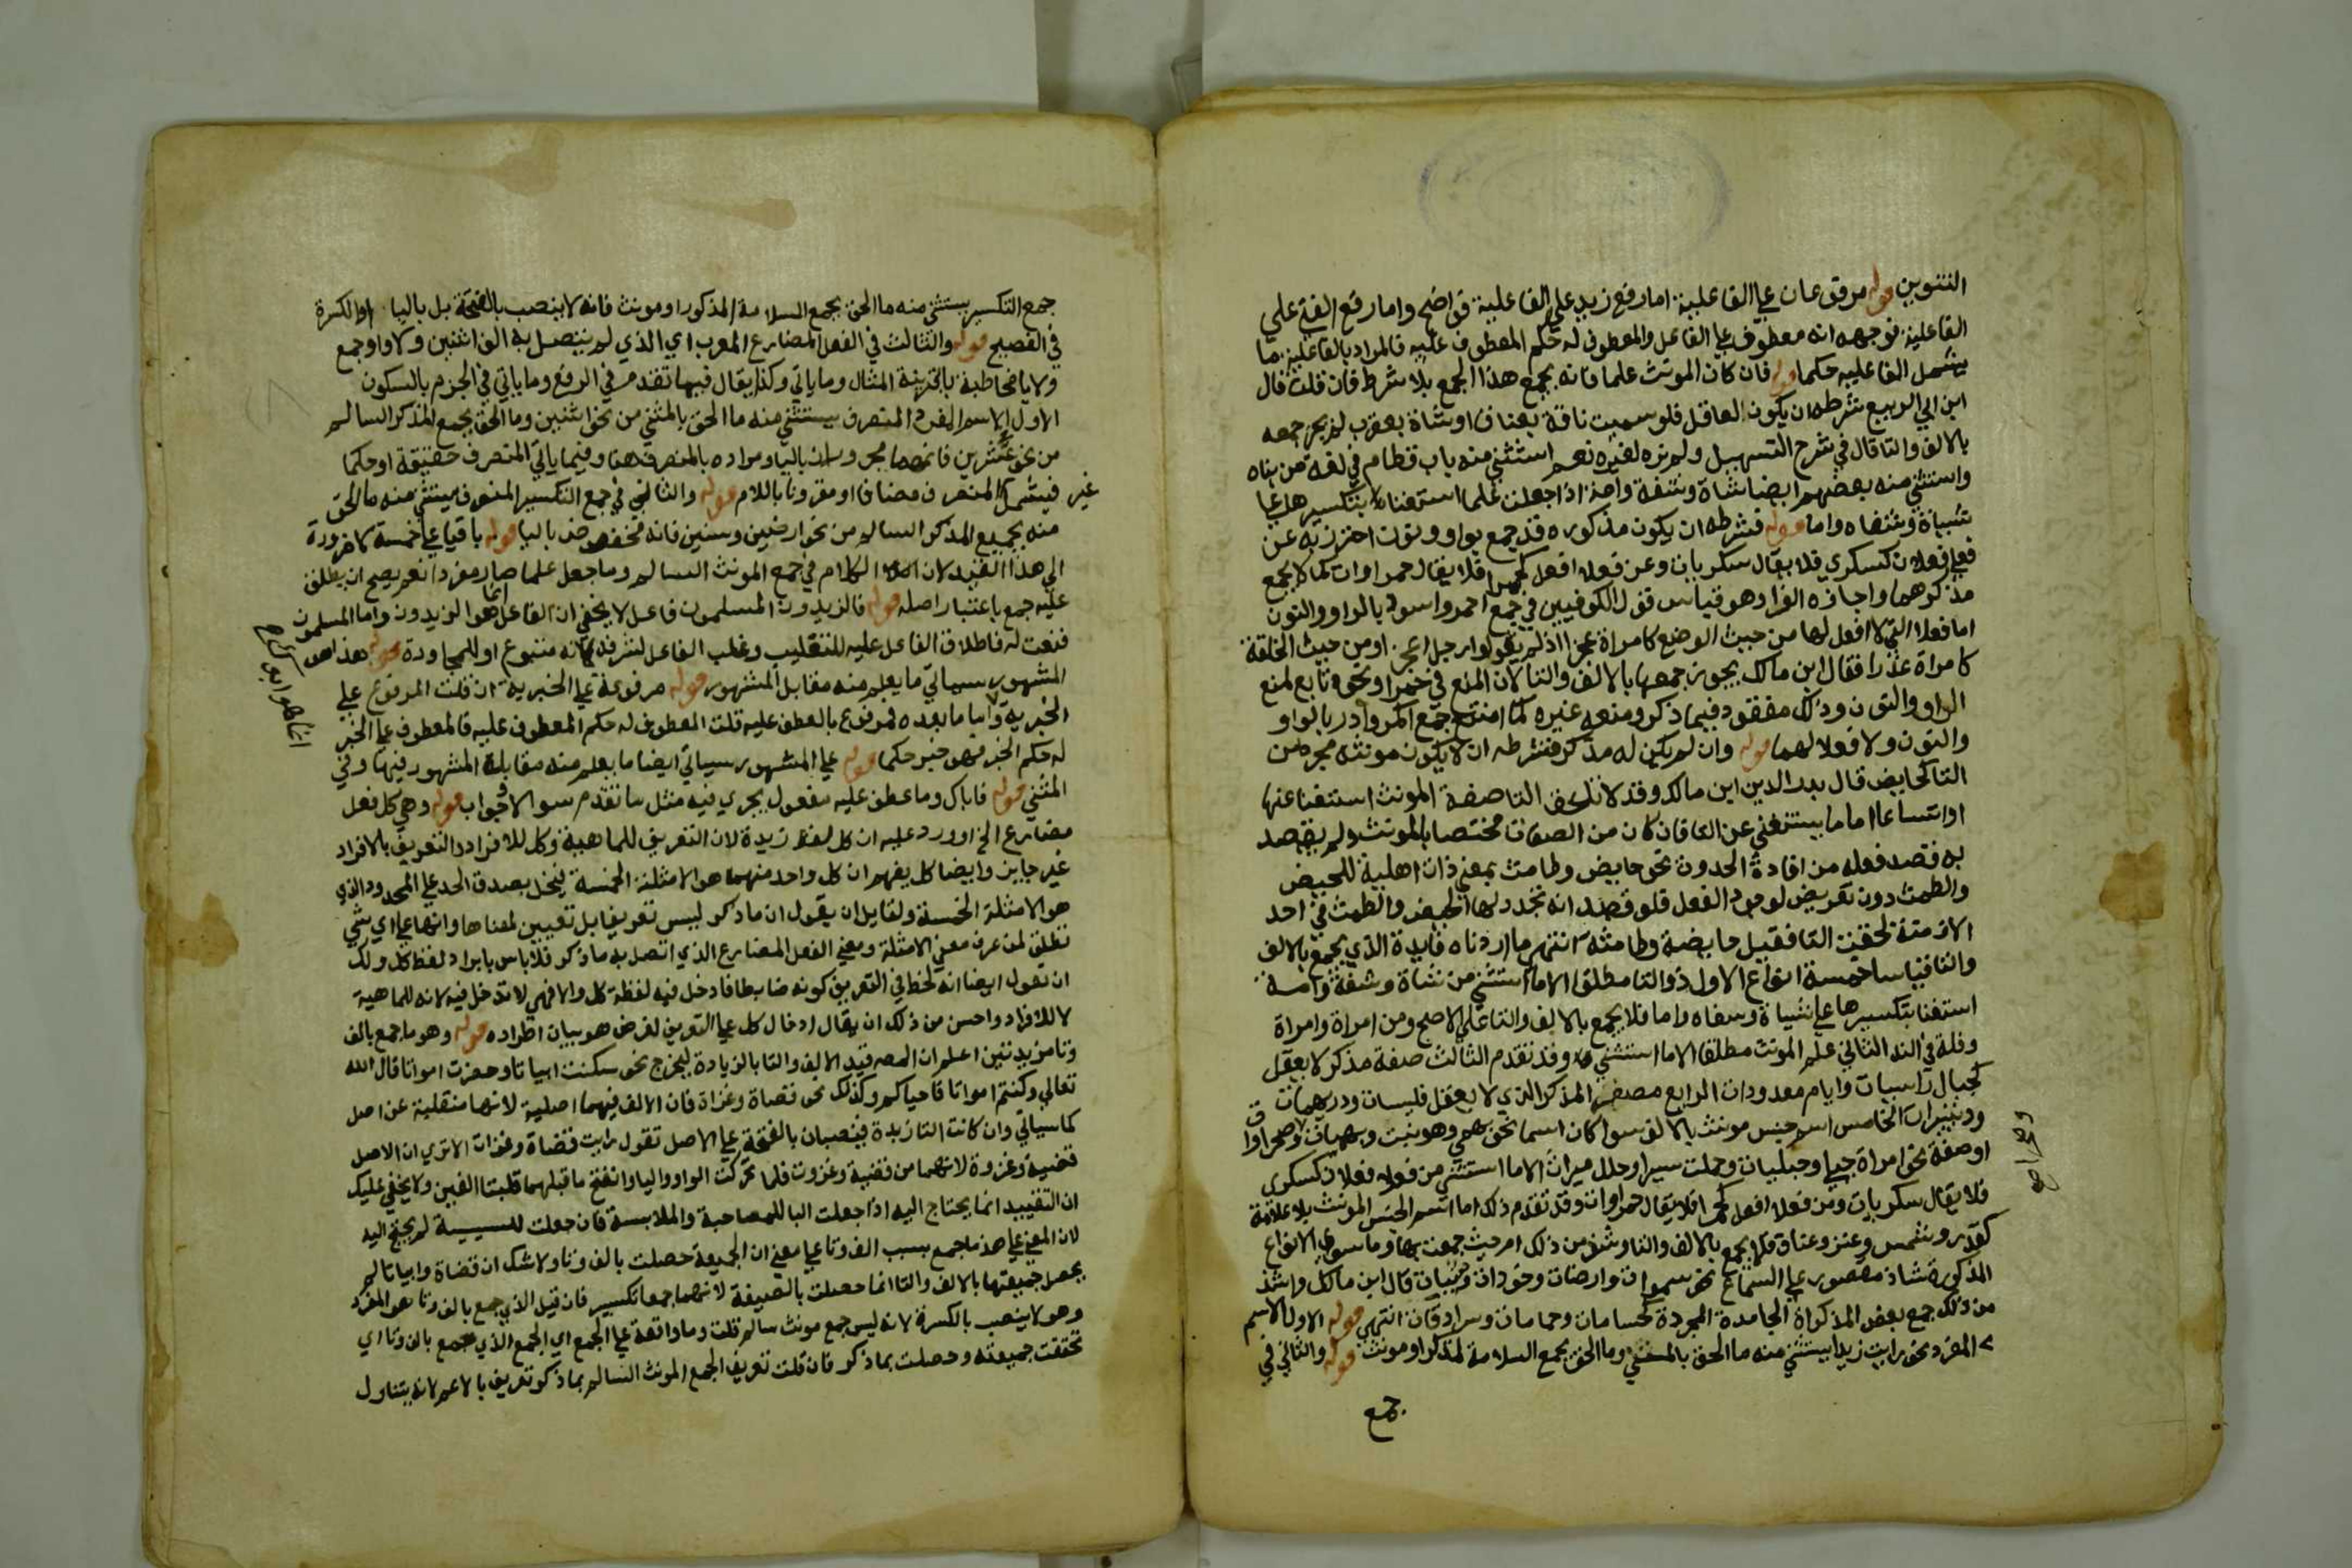 التنوين قوله مرفوعان علي الفاعلية اما رفع زيد علي الفاعلية فواضح واما رفع الفتي علي
الفاعلية فوجهه انه معطوف علي الفاعل والمعطوف له حكم المعطوف عليه فالمراد بالفاعلية ما
يشمل الفاعلية حكما قوله فان كان المونث علما فانه يجمع هذا الجمع بلا شرط فان قلت قال
ابن ابي الربيع شرطه ان يكون لعاقل فلو سميت ناقة بعناق او شاة بعقرب لم يجز جمعه
بالالف والتا قال في شرح التسهيل ولم نره لغيره نعم استثني منه باب قطام في لغة من بناه
واستثني منه بعضهم ايضا شاة وشفة وامة اذا جعلن علما استغناء بتكسيرها علي
شياة وشفاه واما قوله فشرطه ان يكون مذكوره قد جمع بواو ونون احترز به عن
فعلي فعلان كسكري فلا يقال سكريات وعن فعلا افعل كحمرا فلا يقال حمراوات كما لا يجمع
مذكرهما واجازه الفرا وهو قياس قول الكوفيين في جمع احمر واسود بالواو والنون
اما فعلا التي لا افعل لها من حيث الوضع كامراة عجزا اذ لم يقولوا رجل اعجز او من حيث الخلقة
كامراة عذرا فقال ابن مالك يجوز جمعها بالالف والتا لان المنع في حمرا ونحوه تابع لمنع
الواو والنون وذلك مفقود فيما ذكر ومنعه غيره كما امتنع جمع اكمر وآدر بالواو
والنون ولا فعلا لهما قوله وان لم يكن له مذكر فشرطه ان لا يكون مونثه مجرد من
التا كحايض قال بدر الدين ابن مالك وقد لا تلحق التا صفة المونث استغنا عنها
او اتساعا اما ما يستغني عن التا فان كان من الصفات مختصا بالمونث ولم يقصد
به قصد فعله من افادة الحدوث نحو حايض وطامث بمعني ذات اهلية للحيض
والطمث دون تعريض لوجود الفعل فلو قصد انه تجدد لها الحيض والطمث في احد
الازمنة لحقت التا فقيل حايضة وطامثة انتهي ما اردناه فايدة الذي يجمع بالالف
والتا قياسا خمسة انواع الاول ذو التا مطلقا الا ما استثني من شاة وشفة وامة
استغنا بتكسيرها علي شياة وشفاه واما فلا يجمع بالالف والتا علي الاصح ومن امراة وامراة
وقلة في الندا الثاني علم المونث مطلقا الا ما استثني وقد تقدم الثالث صفة مذكر لا يعقل
كجبال راسيات وايام معدودات الرابع مصغر المذكر الذي لا يعقل فليسات ودريهمات
ودنينيرات الخامس اسم جنس مونث بالالف سوا كان اسما نحو بهمي وهو نبت وبهميات وصحراوات
او صفة نحو امراة حبلي وحبليات وحلت سيرا وحلل سيرات الا ما استثني من فعلي فعلان كسكري
فلا يقال سكريات ومن فعلا افعل كحمرا فلا يقال حمراوات وقد تقدم ذلك اما اسم الجنس المونث بلا علامة
كقدر وشمس وعنز وعناق فلا يجمع بالالف والتا وشذ من ذلك ام حيث جمعت بها وما سوي الانواع
المذكورة فشاذ مقصور علي السماع نحو سموات وارضات وخودات وثيبات قال ابن مالك واشذ
من ذلك جمع بعض المذكرات الجامدة المجردة كحسامات وحمامات وسرادقات انتهي قوله الاول الاسم
المفرد نحو رايت زيدا يستثني منه ما الحق بالمثني وما الحق بجمع السلامة لمذكر او مونث قوله والثاني في
جمع
جمع التكسير يستثني منه ما الحق بجمع السلامة المذكور او مونث فانه لا ينصب بالفتحة بل باليا او الكسرة
في الفصيح قوله والثالث في الفعل المضارع المعرب اي الذي لم يتصل به الف اثنين ولا واو جمع
ولا يا مخاطبة بقرينة المثال وما ياتي وكذا يقال فيما تقدم في الرفع وما ياتي في الجزم بالسكون
الاول الاسم المفرد المنصرف يستثني منه ما الحق بالمثني من نحو اثنين وما الحق بجمع المذكر السالم
من نحو عشرين فانهما مجروران باليا ومراده بالمنصرف هنا وفيما ياتي المنصرف حقيقة او حكما
فيشمل غير المنصرف مضافا او مقرونا باللام قوله والثاني في جمع التكسير المنصرف يستثني منه ما الحق
منه بجمع المذكر السالم من نحو ارضين وسنين فانه مخفوض باليا قوله باقيا علي خمسة لا ضرورة
الي هذا القيد لان الكلام في جمع المونث السالم وما جعل علما صار مفردا نعم يصح ان يطلق
عليه جمع باعتبار اصله قوله فالزيدون المسلمون فاعل لا يخفي ان الفاعل انما هو الزيدون واما المسلمون
فنعت له فاطلاق الفاعل عليه للتغليب وغلب الفاعل لشرفه بانه متبوع او للمجاورة قوله هذا هو
المشهور سياتي ما يعلم منه مقابل المشهور قوله مرفوعة علي الخبرية ان قلت المرفوع علي
الخبرية واما ما بعده فمرفوع بالعطف عليه قلت المعطوف له حكم المعطوف عليه فالمعطوف علي الخبر
له حكم الخبر فهو خبر حكما قوله علي المشهور سياتي ايضا ما يعلم منه مقابلة المشهور فيها وفي
المثني قوله فاباك وما عطف عليه مفعول يجري فيه مثل ما تقدم سوالا وجوابا قوله وهي كل فعل
مضارع الخ اورد عليه ان كل لفظ زيدة لان التعريف للماهية وكل للافراد والتعريف بالافراد
غير جايز وايضا كل يفهم ان كل واحد منهما هو الامثلة الخمسة فيختل بصدق الحد علي المحدود الذي
هو الامثلة الخمسة ولقايل ان يقول ان ما ذكر ليس تعريفا بل تعيين لمعناها وانها علي اي شي
تطلق لمن عرف معني الامثلة ومعني الفعل المضارع الذي اتصل به ما ذكر فلا باس بايراد لفظ كل ولك
ان تقول ايضا انه لحظ في التعريف كونه ضابطا فادخل فيه لفظة كل والا فهي لا تدخل فيه لانه للماهية
لا للافراد واحسن من ذلك ان يقال ادخال كل علي التعريف لغرض هو بيان اطراده قوله وهو ما جمع بالف
وتا مزيدتين اعلم ان المص قيد الالف والتا بالزيادة ليخرج نحو سكنت ابياتا وحضرت امواتا قال الله
تعالي وكنتم امواتا فاحياكم وكذلك نحو قضاة وغزاة فان الالف فيهما اصلية لانها منقلبة عن اصل
كما سياتي وان كانت التا زيدة فينصبان بالفتحة علي الاصل تقول رايت قضاة وغزاة الا تري ان الاصل
قضية وغزوة لانهما من قضيت وغزوت فلما تحركت الواو واليا وانفتح ما قبلهما قلبتا الفين ولا يخفي عليك
ان التقييد انما يحتاج اليه اذا جعلت البا للمصاحبة والملابسة فان جعلت للسببية لم يحتج اليه
لان المعني علي هذا ما جمع بسبب الف وتا علي معني ان الجمعية حصلت بالف وتا ولا شك ان قضاة وابياتا لم
يحصل جمعيتها بالالف والتا انما حصلت بالصيغة لانهما جمعا تكسير فان قيل الذي جمع بالف وتا هو المفرد
وهو لا ينصب بالكسرة لانه ليس جمع مونث سالم قلت وما واقعة علي الجمع اي الجمع الذي جمع بالف وتا اي
تحققت جمعيته وحصلت بما ذكر فان قلت تعريف الجمع المونث السالم بما ذكر تعريف بالاعم لانه يتناول